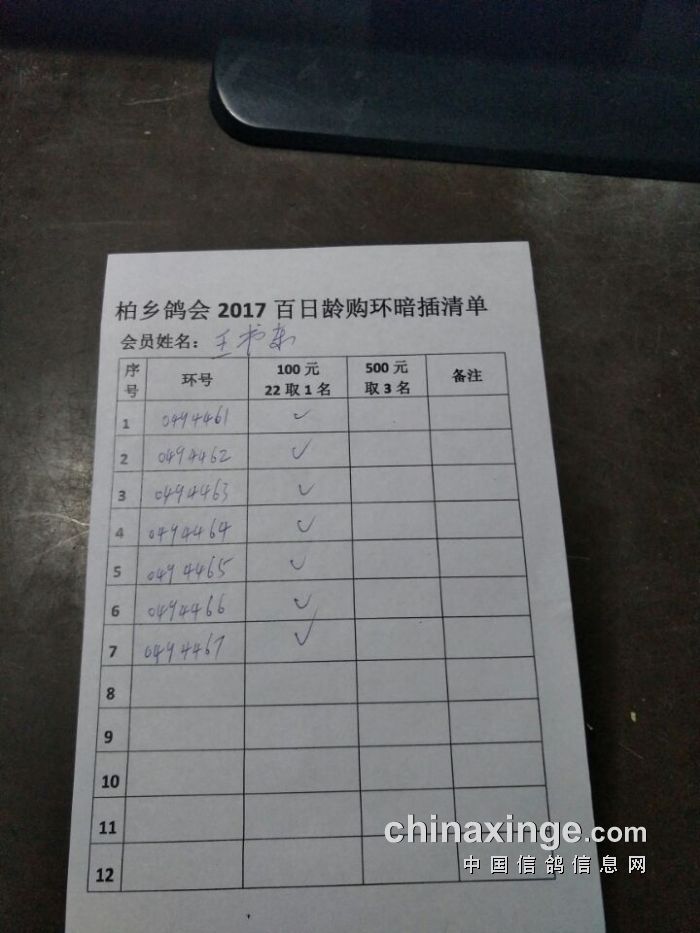 柏乡鸽会 2017 百日龄购环暗插清单
会员姓名：王书東
序号 环号 100 元 22 取 1 名 500 元 取 3 名 备注
1 0494461 ✓
2 0494462 ✓
3 0494463 ✓
4 0494464 ✓
5 0494465 ✓
6 0494466 ✓
7 0494467 ✓
8
9
10
11
12
chinaxinge.com
中国信鸽信息网